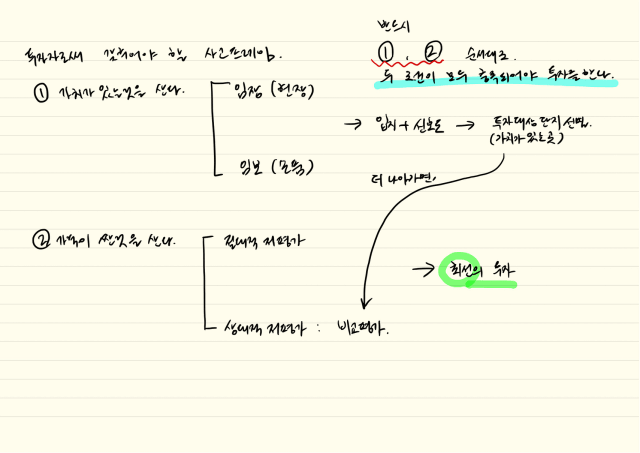 반드시
투자자로서 갖춰야 할 사고프레임.
①, ② 순서대로
두 조건이 모두 충족되어야 투자를 한다.
① 가치가 있는것을 산다.
임장 (현장)
→ 입지 + 선호도 → 투자대상 단지 선별.
(가치가 있는 곳)
임보 (손품)
더 나아가면,
② 가격이 싼것을 산다.
절대적 저평가
→ 최선의 투자
상대적 저평가 : 비교평가.